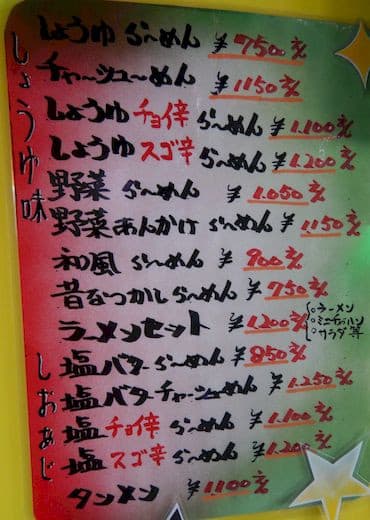 しょうゆ味
しょうゆ らーめん ¥750円
チャーシューめん ¥1150円
しょうゆ チョイ辛 らーめん ¥1.100円
しょうゆ スゴ辛 らーめん ¥1.200円
野菜 らーめん ¥1.050円
野菜あんかけ らーめん ¥1150円
和風 らーめん ¥900円
昔なつかしらーめん ¥750円
ラーメンセット ¥1.200円
ラーメン
ミニチャーハン
サラダ 等
しおあじ
塩バターらーめん ¥850円
塩バターチャーシューめん ¥1.250円
塩 チョイ辛 らーめん ¥1.100円
塩 スゴ辛 らーめん ¥1.200円
タンメン ¥1100円